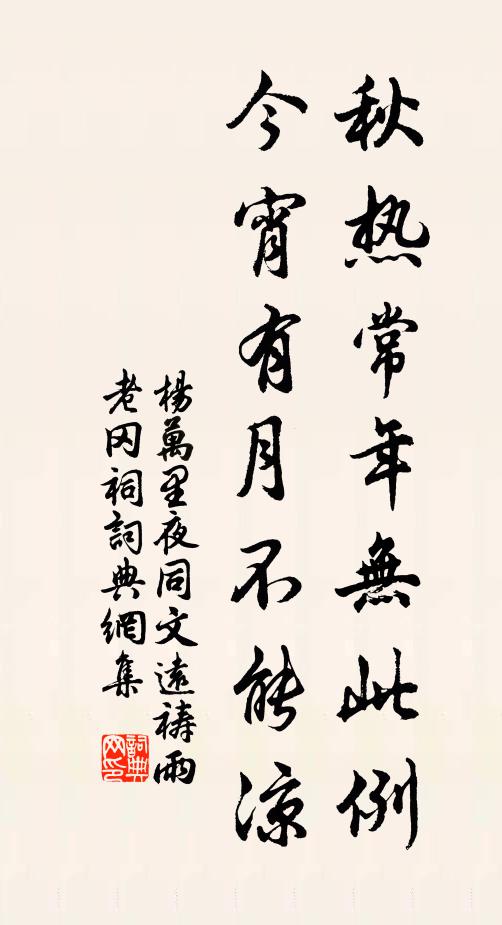 秋热常年無此例
今宵有月不能凉
楊萬里夜同文遠禱雨
老冈祠詞典網集
詞典
网印